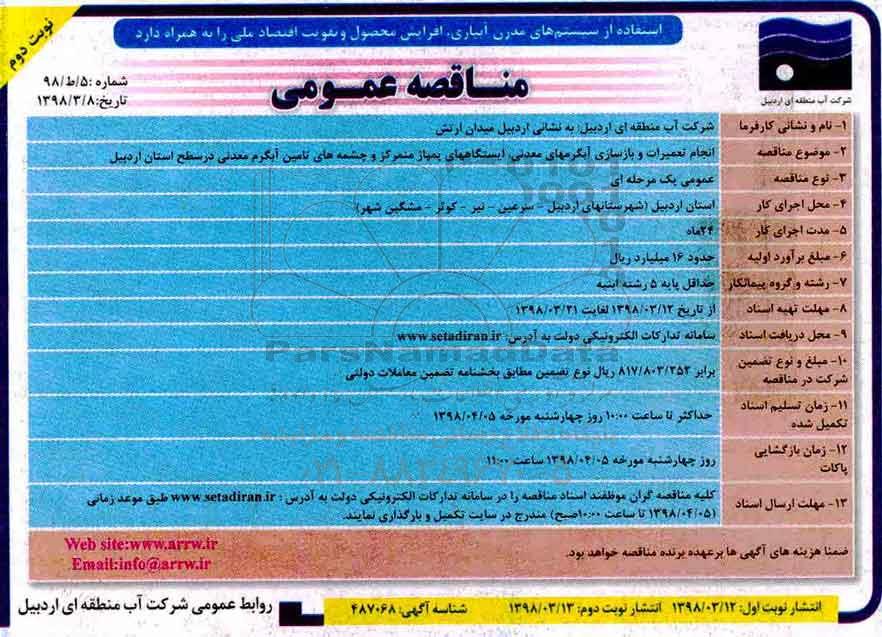 نوبت دوم
استفاده از سیستم‌های مدرن آبیاری، افزایش محصول و تقویت اقتصاد ملی را به همراه دارد
شماره :۵/ط/۹۸
تاریخ:۱۳۹۸/۳/۸
مناقصه عمومی
شرکت آب منطقه ای اردبیل
۱- نام و نشانی کارفرما شرکت آب منطقه ای اردبیل: به نشانی اردبیل میدان ارتش
۲- موضوع مناقصه انجام تعمیرات و بازسازی آبگرمهای معدنی، ایستگاههای پمپاژ متمرکز و چشمه های تامین آبگرم معدنی درسطح استان اردبیل
۳- نوع مناقصه عمومی یک مرحله ای
۴- محل اجرای کار استان اردبیل (شهرستانهای اردبیل - سرعین - نیر - کوثر - مشگین شهر)
۵- مدت اجرای کار ۲۴ماه
۶- مبلغ برآورد اولیه حدود ۱۶ میلیارد ریال
۷- رشته و گروه پیمانکار حداقل پایه ۵ رشته ابنیه
۸- مهلت تهیه اسناد از تاریخ ۱۳۹۸/۰۳/۱۲ لغایت ۱۳۹۸/۰۳/۲۱
۹- محل دریافت اسناد سامانه تدارکات الکترونیکی دولت به آدرس: www.setadiran.ir
۱۰- مبلغ و نوع تضمین
شرکت در مناقصه برابر ۸۱۷/۸۰۳/۳۵۲ ریال نوع تضمین مطابق بخشنامه تضمین معاملات دولتی
۱۱- زمان تسلیم اسناد
تکمیل شده حداکثر تا ساعت ۱۰:۰۰ روز چهارشنبه مورخه ۱۳۹۸/۰۴/۰۵
۱۲- زمان بازگشایی
پاکات روز چهارشنبه مورخه ۱۳۹۸/۰۴/۰۵ ساعت ۱۱:۰۰
۱۳- مهلت ارسال اسناد کلیه مناقصه گران موظفند اسناد مناقصه را در سامانه تدارکات الکترونیکی دولت به آدرس : www.setadiran.ir طبق موعد زمانی
(۱۳۹۸/۰۴/۰۵ تا ساعت ۱۰:۰۰صبح) مندرج در سایت تکمیل و بارگذاری نمایند.
ضمنا هزینه های آگهی ها برعهده برنده مناقصه خواهد بود.
Web site:www.arrw.ir
Email:info@arrw.ir
انتشار نوبت اول: ۱۳۹۸/۰۳/۱۲ انتشار نوبت دوم: ۱۳۹۸/۰۳/۱۳ شناسه آگهی: ۴۸۷۰۶۸
روابط عمومی شرکت آب منطقه ای اردبیل
ParsNamadData